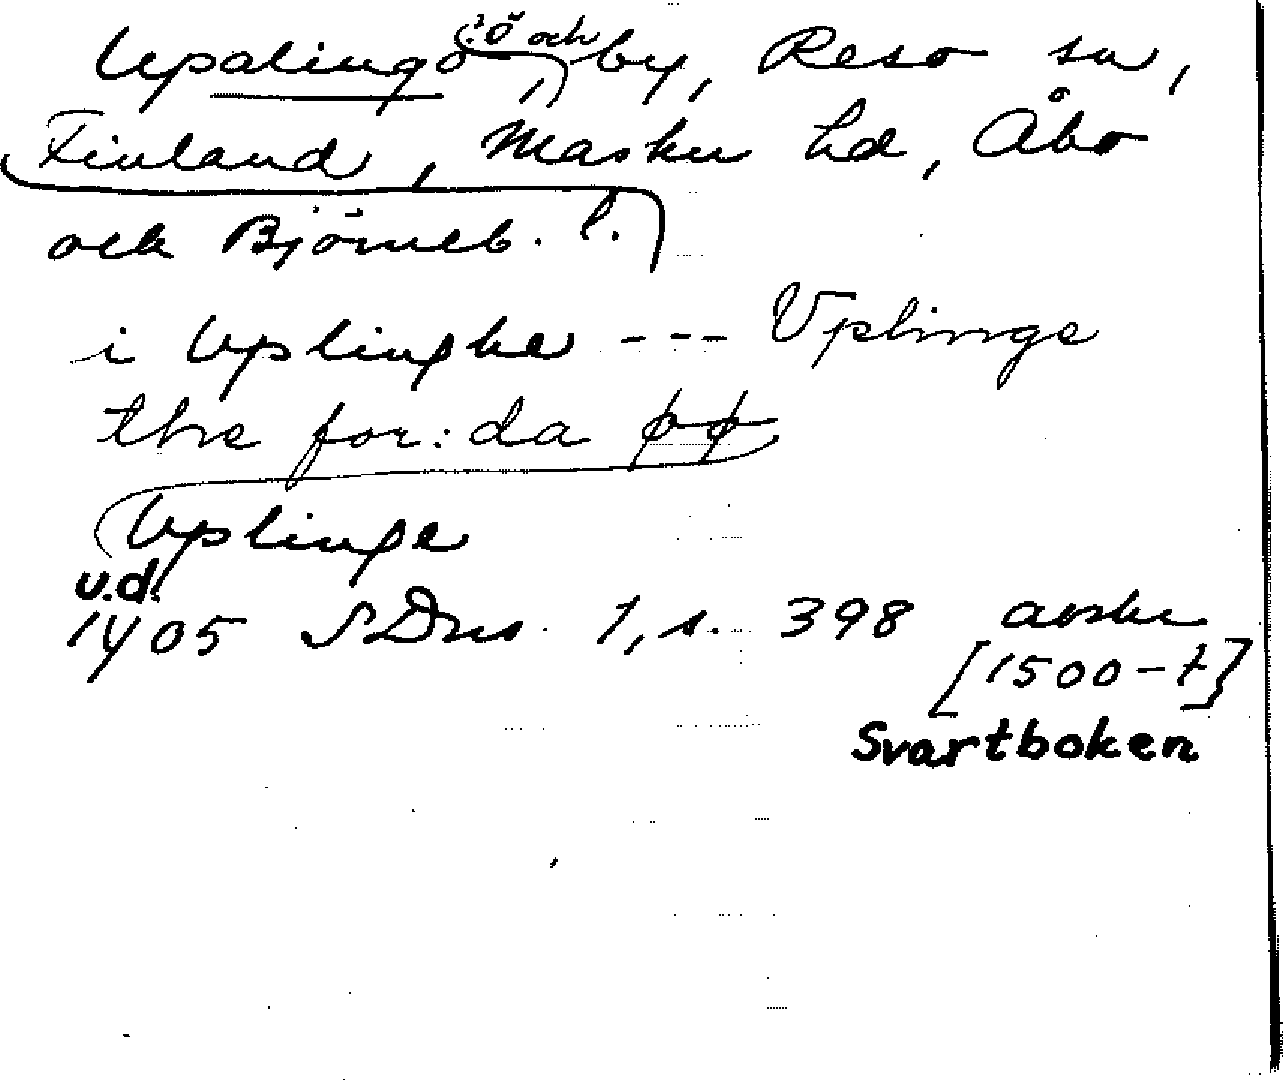 Upalingö, ö och by, Reso sn,
Finland, Masku hd, Åbo
och Björneb. l.
i Vplinghe --- Vplinge
thre for: da
Vplinge
u.d.
1405 SDns 1, s. 398 avskr
[1500-t]
Svartboken